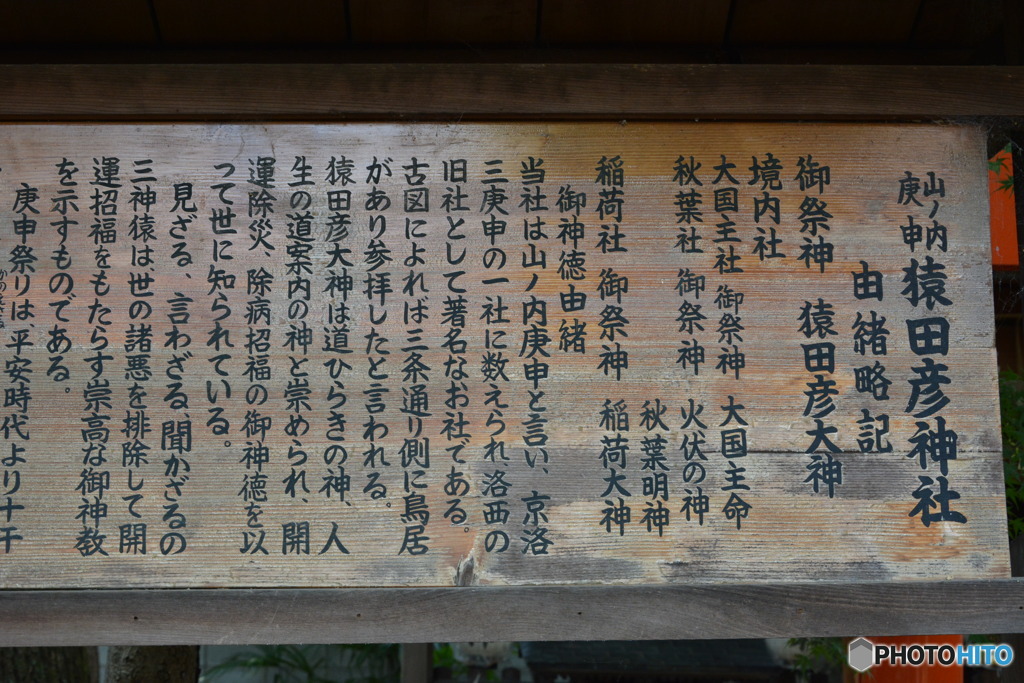 山ノ内
庚申
猿田彦神社
由緒略記
御祭神 猿田彦大神
境内社
大国主社 御祭神 大国主命
秋葉社 御祭神 火伏の神
秋葉明神
稲荷社 御祭神 稲荷大神
御神徳由緒
当社は山ノ内庚申と言い、京洛
三庚申の一社に数えられ、洛西の
旧社として著名なお社である。
古図によれば三条通り側に鳥居
があり参拝したと言われる。
猿田彦大神は道ひらきの神、人
生の道案内の神と崇められ、開
運除災、除病招福の御神徳を以
って世に知られている。
見ざる、言わざる、聞かざるの
三神猿は、世の諸悪を排除して開
運招福をもたらす崇高な御神教
を示すものである。
庚申祭りは、平安時代より十干
PHOTOHITO